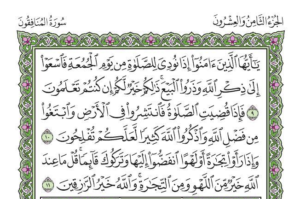 الجزء الثامن والعشرون سورة المنافقون
يَٰٓأَيُّهَا ٱلَّذِينَ ءَامَنُوٓا۟ إِذَا نُودِىَ لِلصَّلَوٰةِ مِن يَوْمِ ٱلْجُمُعَةِ فَٱسْعَوْا۟
إِلَىٰ ذِكْرِ ٱللَّهِ وَذَرُوا۟ ٱلْبَيْعَ ذَٰلِكُمْ خَيْرٌ لَّكُمْ إِن كُنتُمْ تَعْلَمُونَ
٩ فَإِذَا قُضِيَتِ ٱلصَّلَوٰةُ فَٱنتَشِرُوا۟ فِى ٱلْأَرْضِ وَٱبْتَغُوا۟
مِن فَضْلِ ٱللَّهِ وَٱذْكُرُوا۟ ٱللَّهَ كَثِيرًا لَّعَلَّكُمْ تُفْلِحُونَ ١٠
وَإِذَا رَأَوْا۟ تِجَٰرَةً أَوْ لَهْوًا ٱنفَضُّوٓا۟ إِلَيْهَا وَتَرَكُوكَ قَآئِمًا قُلْ مَا عِندَ
ٱللَّهِ خَيْرٌ مِّنَ ٱللَّهْوِ وَمِنَ ٱلتِّجَٰرَةِ وَٱللَّهُ خَيْرُ ٱلرَّٰزِقِينَ ١١